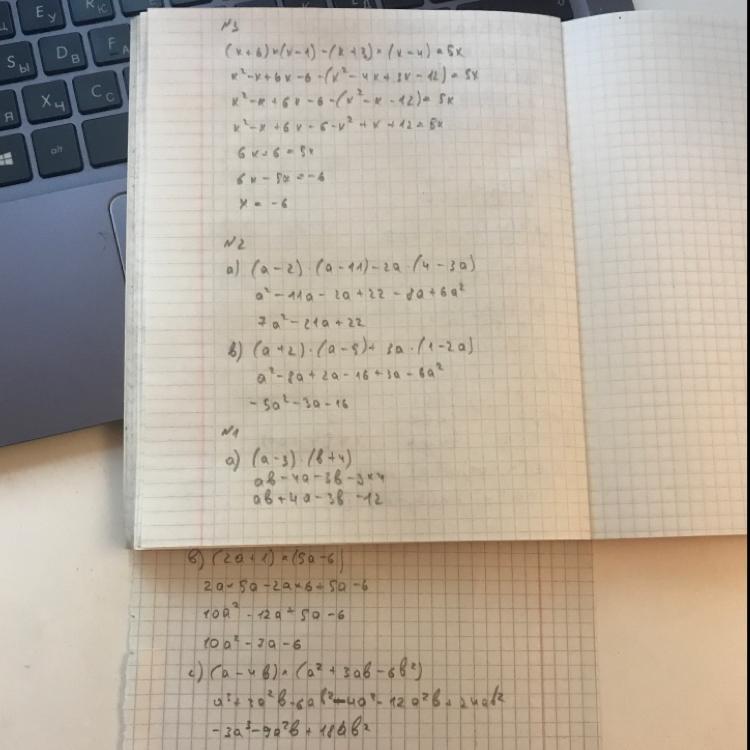 Е У
К
Ц
S Ы
D В
F А
Я
X Ч
C С
alt
N3
(x+6)×(x-1)-(x+3)×(x-4)=5x
x²-x+6x-6-(x²-4x+3x-12)=5x
x²-x+6x-6-(x²-x-12)=5x
x²-x+6x-6-x²+x+12=5x
6x+6=5x
6x-5x=-6
x=-6
N2
a) (a-2)·(a-11)-2a·(4-3a)
a²-11a-2a+22-8a+6a²
7a²-21a+22
b) (a+2)·(a-8)+3a·(1-2a)
a²-8a+2a-16+3a-6a²
-5a²-3a-16
N1
a) (a-3)·(b+4)
ab-4a-3b-3×4
ab+4a-3b-12
b) (2a+1)×(5a-6)
2a×5a-2a×6+5a-6
10a²-12a+5a-6
10a²-7a-6
c) (a-4b)×(a²+3ab-6b²)
a³+3a²b-6ab²-4a³-12a²b+24ab²
-3a³-9a²b+18ab²